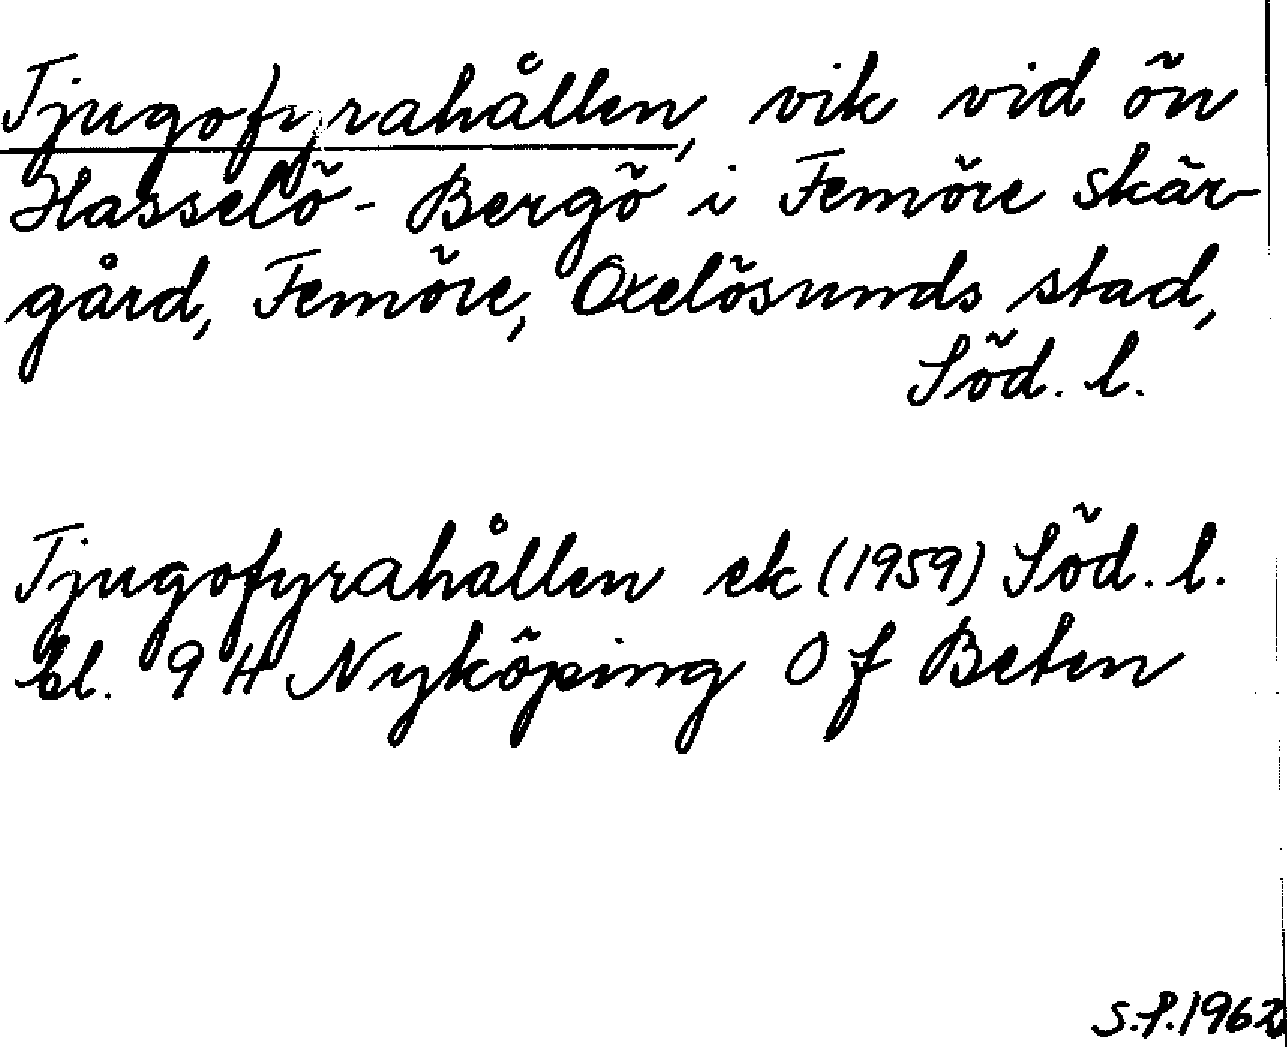 Tjugofyrahållen, vik vid ön
Hasselö-Bergö i Femöre skär-
gård, Femöre, Oxelösunds stad,
Söd. l.
Tjugofyrahållen ek (1959) Söd. l.
bl. 9 H Nyköping 0 f Beten
S.S. 1962